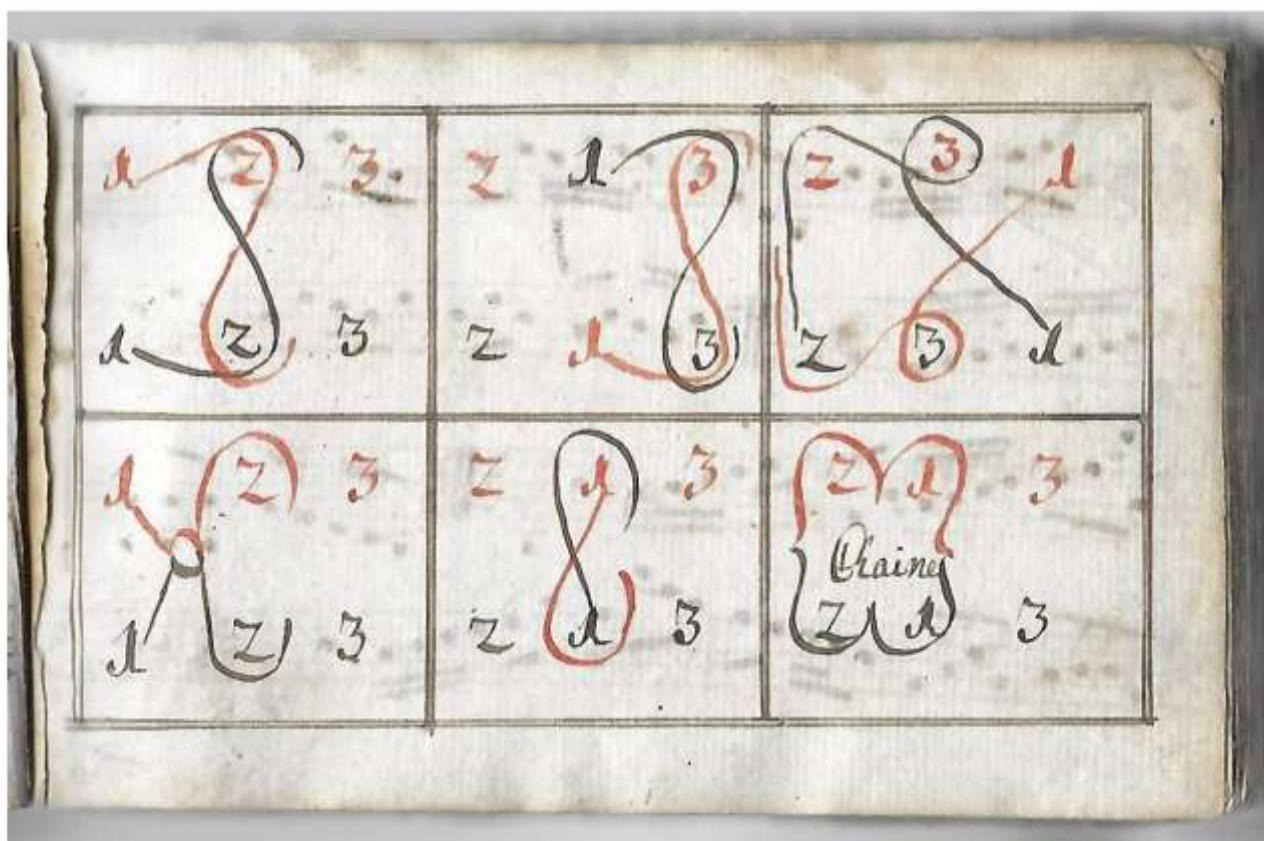 1 2 3
1 2 3
2 1 3
2 1 3
2 3 1
2 3 1
1 2 3
1 2 3
2 1 3
2 1 3
2 1 3
Chaine
2 1 3